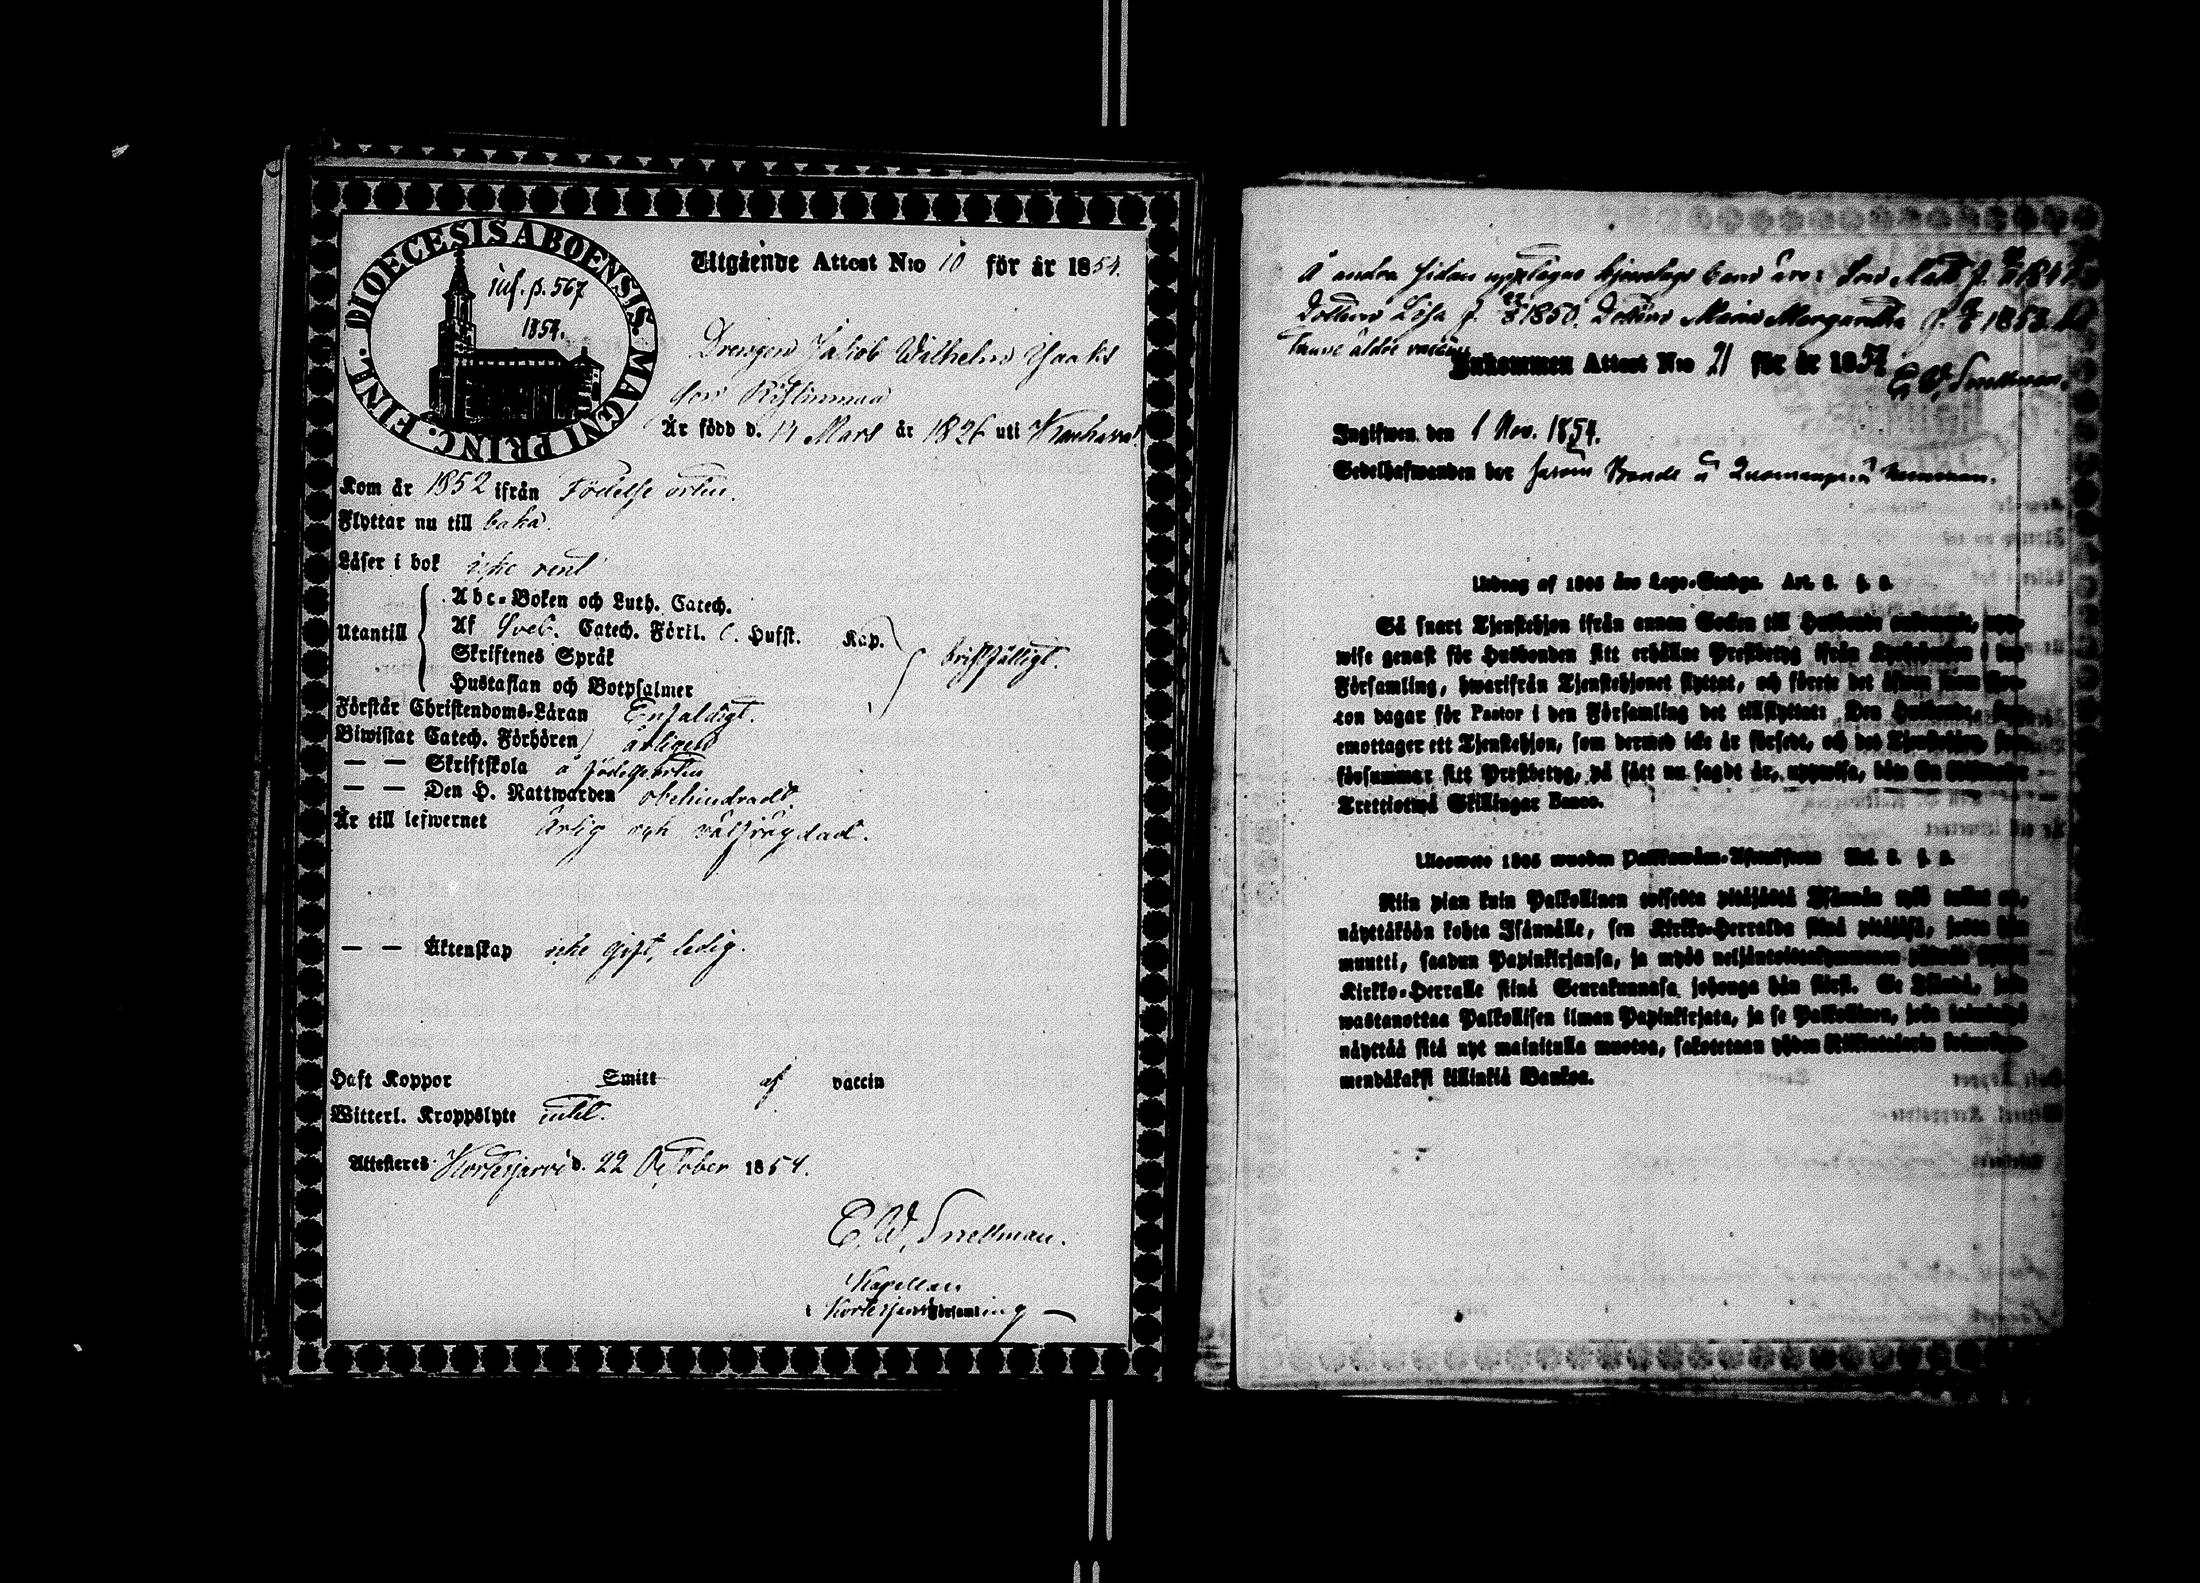 DIOECESIS ABOENSIS. MAGNI PRINC. FINL.
inf. p. 567
1854.
Utgående Attest N:o 10 för år 1854.
Drengen Jakob Wilhelm Isaaks
son Ristimaa
Är född d. 14 Mars år 1826 uti Kauhava.
Kom år 1852 ifrån Födelse orten.
Flyttar nu till baka.
Läser i bok icke rent
Abc-Boken och Luth. Catech.
Utantill Af Sveb. Catech. Förkl. C. Husst. Kap.
Skriftenes Språk bristfälligt.
Hustaflan och Botpsalmer
Förstår Christendoms-Läran Enfaldigt.
Biwistat Catech. Förhören årligen
— — Skriftskola å födelseorten
— — Den H. Nattwarden obehindradt.
Är till lefwernet Ärlig och välfrägdad.
— — Äktenskap icke gift, ledig.
Haft Koppor Smitt af vaccin
Witterl. Kroppslyte intet.
Attesteras Kortesjärvi d. 22 October 1854.
E. W. Snellman.
Kapellan
i Kortesjärvi Församling
Å andra sidan upptagne hjonelags barn äro: Son Matts f. 1847.
Dottern Lisa f. 1850. Dottern Maria Margaretha f. 1853.
äldre
Inkommen Attest N:o 21 för år 1854
E. W. Snellman.
Ingifwen den 1 Nov. 1854.
Sedelhafwanden bor Bonde å
Utdrag af 1805 års Lego-Stadga. Art. §.
Så snart Tjenstehjon ifrån annan Socken till Husbonde ankommit, upp-
wise genast för Husbonden sitt erhållne Prestbetyg ifrån Kyrkoherden i den
Församling, hwarifrån Tjenstehjonet flyttat, och förete det äfwen inom fjor-
ton dagar för Pastor i den Församling det tillflyttat: Den Husbonde, som
emottager ett Tjenstehjon, som dermed icke är försedt, och det Tjenstehjon, som
försummar sitt Prestbetyg, på sätt nu sagdt är, uppwisa, böte En Riksdaler
Trettiotwå Skillingar Banco.
Uloswete 1805 wuoden Palkkawäen-Asetuksesta Art. §.
Niin pian kuin Palkollinen toisesta pitäjästä Isännän työ tullut on,
näyttäköön kohta Isännälle, sen Kirkko-Herralda siinä pitäjäsä, josta hän
muutti, saadun Papinkirjansa, ja myös neljäntoistakymmenen päiwän sisällä
Kirkko-Herralle siinä Seurakunnasa johonga hän siirsi. Se Isändä, joka
wastanottaa Palkollisen ilman Papinkirjata, ja se Palkollinen, joka laiminlyö
näyttää sitä nyt mainitulla muoton, sakotetaan yhden Riksintalarin kolmekym-
mendäkaksi killinkiä Bankoa.